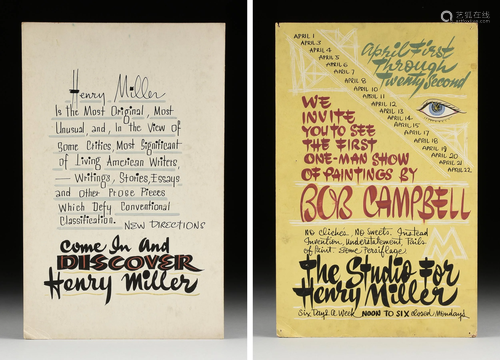 Henry Miller
Is the Most Original, Most
Unusual, and, In the View of
Some Critics, Most Significant
of Living American Writers,
— Writings, Stories, Essays
and Other Prose Pieces
Which Defy Conventional
Classification.
NEW DIRECTIONS
Come In And
DISCOVER
Henry Miller
APRIL 1
APRIL 3
APRIL 4
APRIL 5
APRIL 6
APRIL 7
APRIL 8
APRIL 10
APRIL 11
APRIL 12
APRIL 13
APRIL 14
APRIL 15
APRIL 17
APRIL 18
APRIL 19
APRIL 20
APRIL 21
APRIL 22
April First
Through
Twenty Second
WE
INVITE
YOU TO SEE
THE FIRST
ONE-MAN SHOW
OF PAINTINGS BY
BOB CAMPBELL
NO Cliches. NO Sweets. Instead
Invention, Understatement, Pails
of Paint. Some Persiflage
M
The Studio For
Henry Miller
Six Days A Week NOON TO SIX closed Mondays